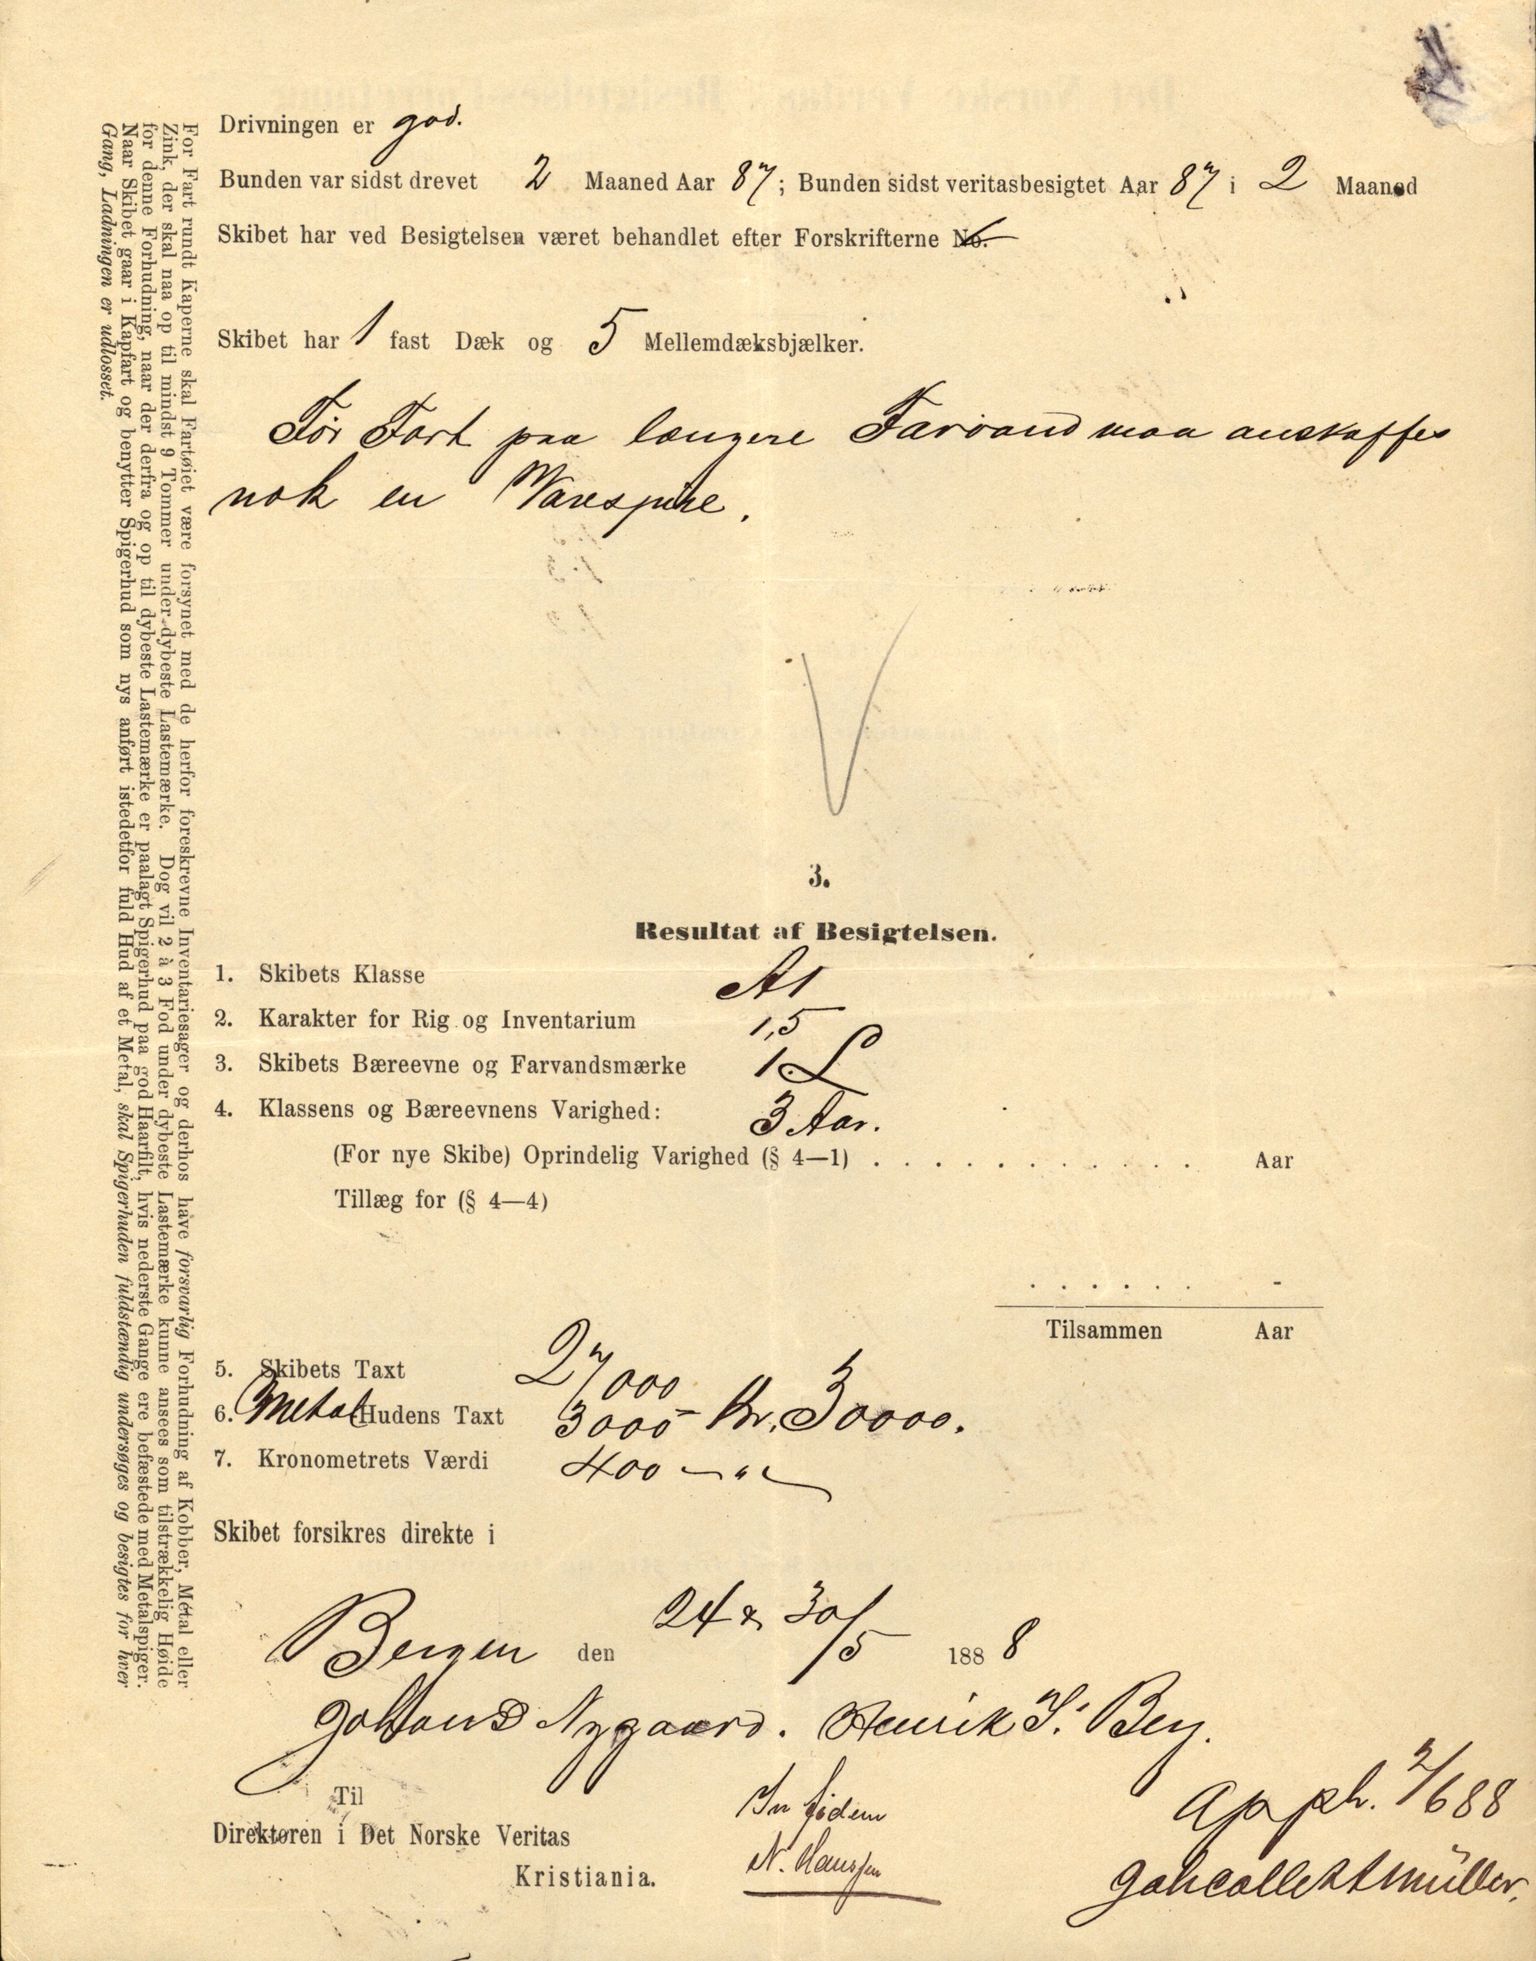 Drivningen er god.
Bunden var sidst drevet 2 Maaned Aar 87; Bunden sidst veritasbesigtet Aar 87 i 2 Maaned
Skibet har ved Besigtelsen været behandlet efter Forskrifterne No.
Skibet har 1 fast Dæk og 5 Mellemdæksbjælker.
För Fart paa længere Farvand maa anskaffes
nok en Varespire.
3.
Resultat af Besigtelsen.
1. Skibets Klasse A1
2. Karakter for Rig og Inventarium 1,5
3. Skibets Bæreevne og Farvandsmærke 1 L
4. Klassens og Bæreevnens Varighed: 3 Aar.
(For nye Skibe) Oprindelig Varighed (§ 4—1) . . . . . . . . . . . . Aar
Tillæg for (§ 4—4)
. . . . . . -
Tilsammen Aar
5. Skibets Taxt 27000
6. Metal Hudens Taxt 3000 - Kr. 30000.
7. Kronometrets Værdi 400 — " —
Skibet forsikres direkte i
Bergen den 24 & 30/5 1888
Johan D Nygaard. Henrik S. Berg.
Til
Direktøren i Det Norske Veritas
Kristiania.
In fidem
N. Hanssen
App ph. 2/6 88
Joh Collett Müller.
For Fart rundt Kaperne skal Fartøiet være forsynet med de herfor foreskrevne Inventariesager og derhos have forsvarlig Forhudning af Kobber, Metal eller
Zink, der skal naa op til mindst 9 Tommer under dybeste Lastemærke. Dog vil 2 à 3 Fod under dybeste Lastemærke kunne ansees som tilstrækkelig Høide
for denne Forhudning, naar der derfra og op til dybeste Lastemærke er paalagt Spigerhud paa god Haarfilt, hvis nederste Gange ere befæstede med Metalspiger.
Naar Skibet gaar i Kapfart og benytter Spigerhud som nys anført istedetfor fuld Hud af et Metal, skal Spigerhuden fuldstændig undersøges og besigtes for hver
Gang, Ladningen er udlosset.